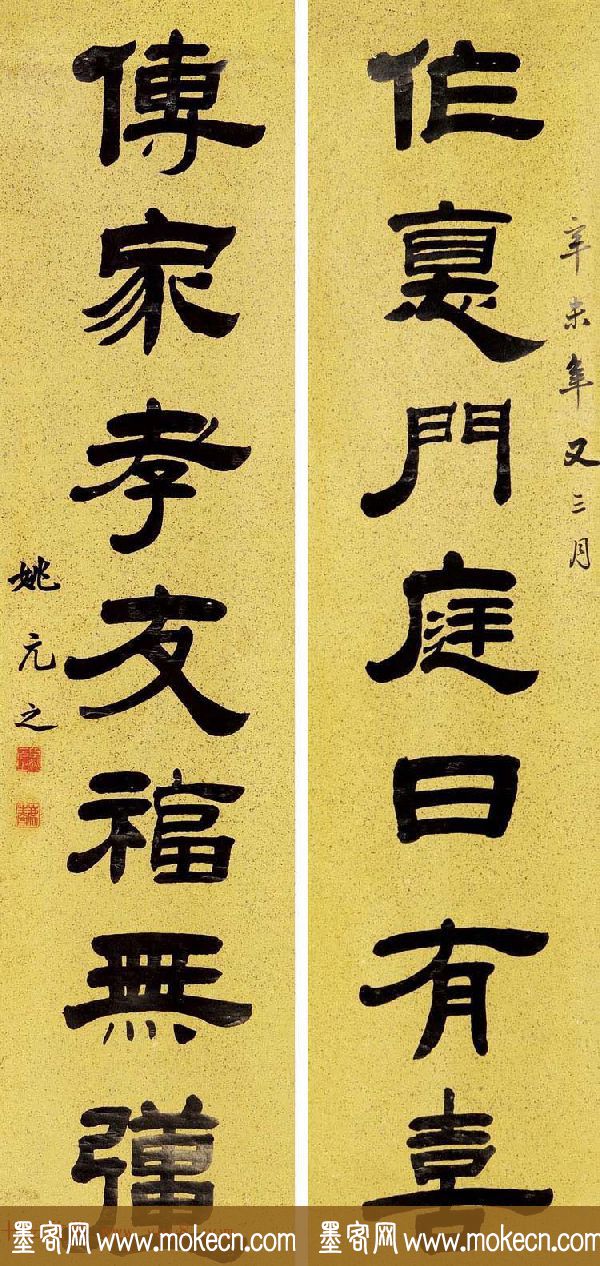 辛未年又三月
作惪門庭日有喜
傳家孝友福無彊
姚元之
墨客网 www.mokecn.com
墨客网 www.mokecn.com